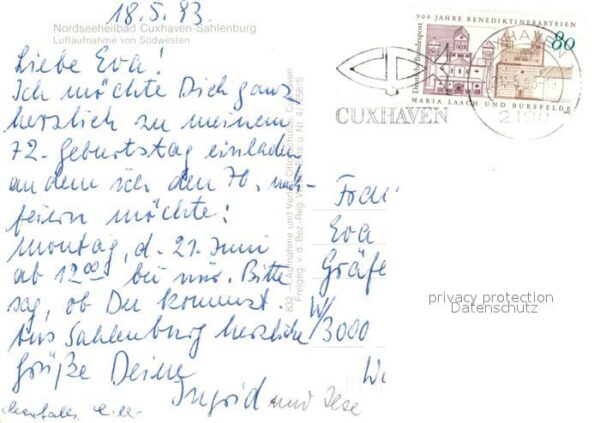 18.5.93
Nordseeheilbad Cuxhaven-Sahlenburg
Luftaufnahme von Südwesten
Liebe Eva!
Ich möchte Dich ganz
herzlich zu meinem
72. Geburtstag einladen
an dem ich den 70. nach-
feiern möchte!
Montag, d. 21. Juni
ab 12 00 bei mir. Bitte
sag, ob Du kommst.
Aus Sahlenburg herzliche
Grüße Deine
Ingrid und
832 Aufnahme und
Freigeg. v. d. Bez. Reg.
900 JAHRE BENEDIKTINERABTEIEN
80
Deutsche Bundespost
MARIA LAACH UND BURSFELDE
CUXHAVEN
CUXHAVEN
Frau
Eva
Gräfe
W/3000
privacy protection
Datenschutz